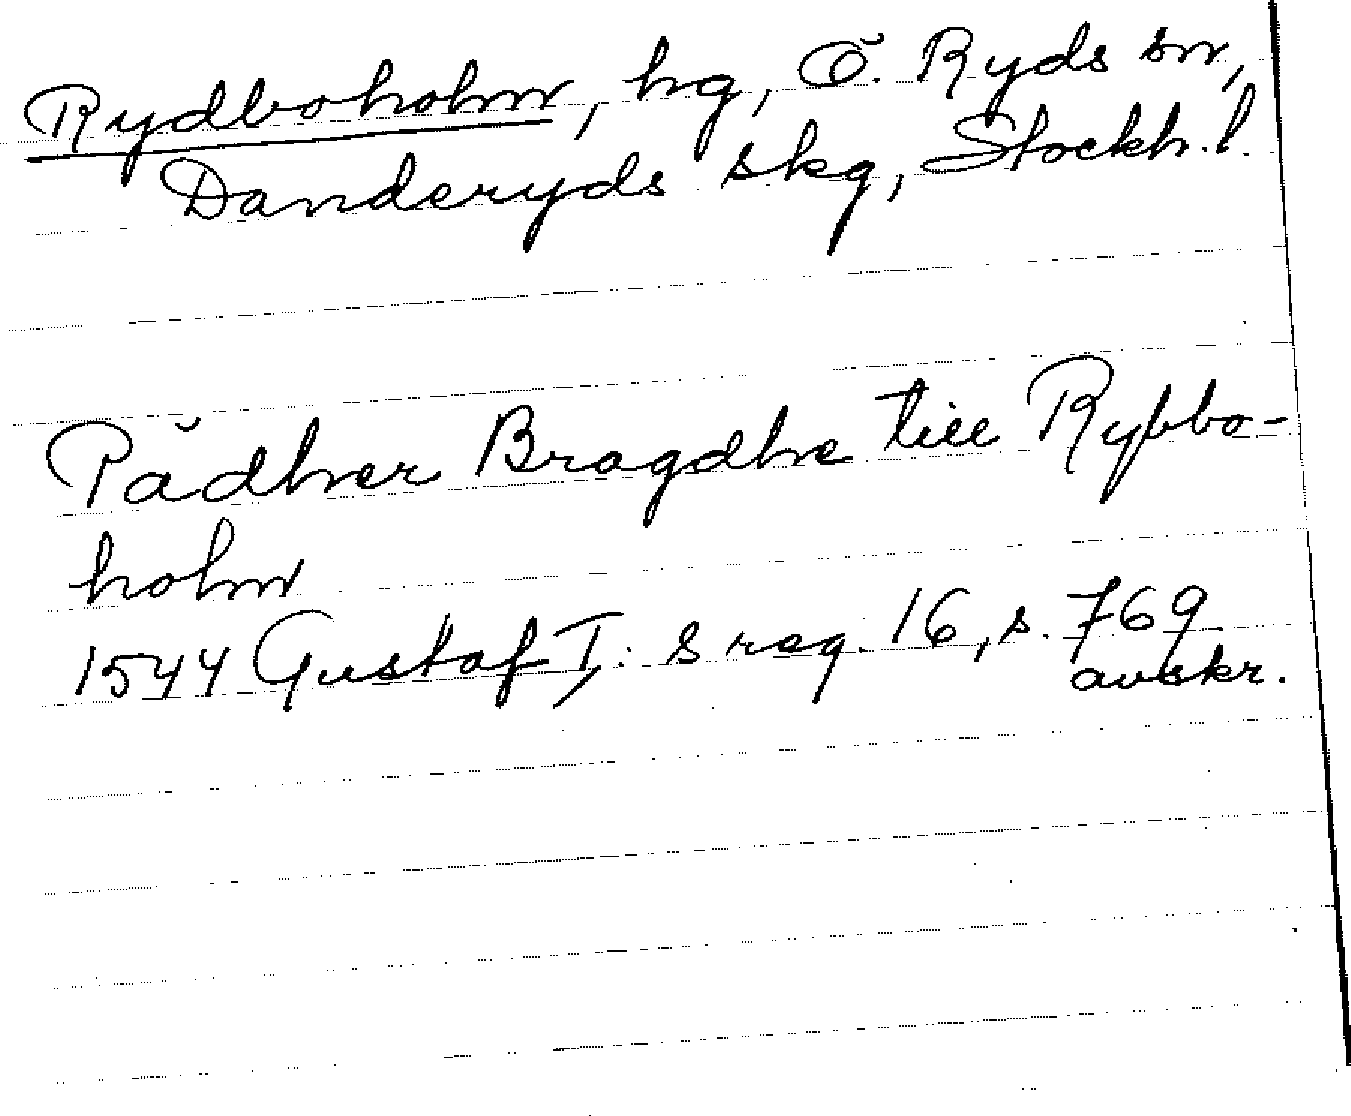 Rydboholm, hg, Ö. Ryds sn,
Danderyds skg, Stockh. l.
Pädher Bragdhe till Rybbo-
holm
1544 Gustaf I: s reg. 16, s. 769
avskr.